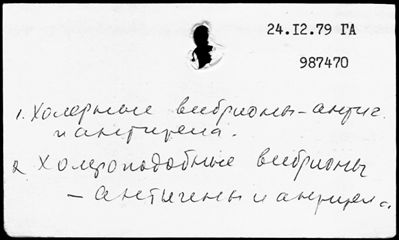 24.I2.79 ГА
987470
1. Холерные вибрионы-антиг.
и антитела.
2. Холероподобные вибрионы
- антигены и антитела.